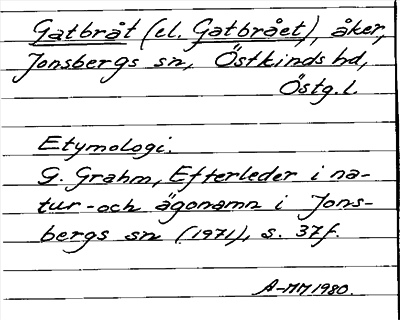 Gatbråt (el. Gatbrået), åker,
Jonsbergs sn, Östkinds hd,
Östg. l.
Etymologi.
G. Grahm, Efterleder i na-
tur- och ägonamn i Jons-
bergs sn (1971), s. 37f.
A-MM 1980.